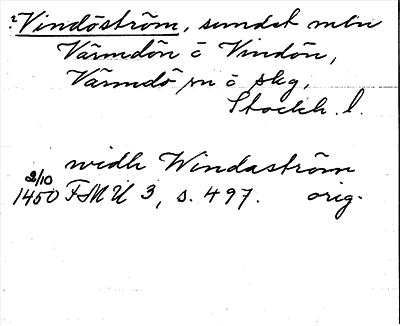 ?Vindöström, sundet mln
Värmdön o Vindön,
Värmdö sn o skg,
Stockh. l.
widh Windaström
2/10
1450 FMU 3, s. 497. orig.